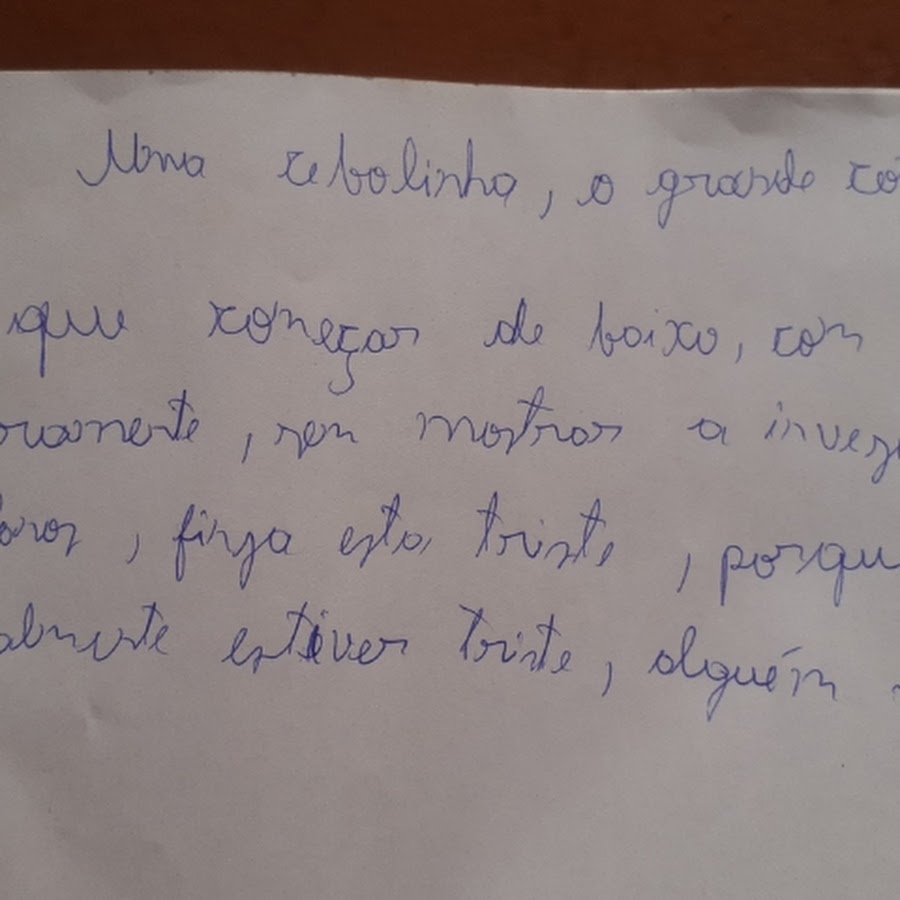 Numa cebolinha, o grande co
que começar de baixo, com
oramente, sem mostrar a inves
finja esta triste, porqu
almente estiver triste, alguém